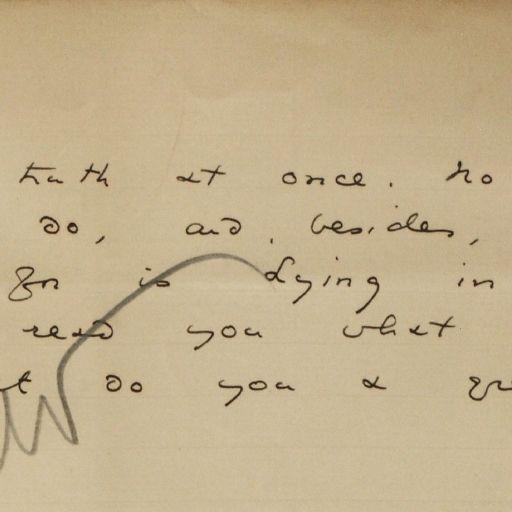 truth at once. No
do, and, besides,
is lying in
read you what
do you a